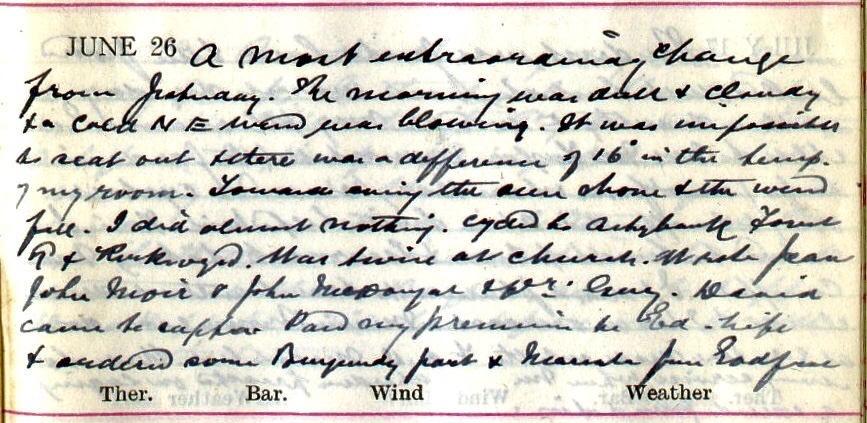 JUNE 26 A most extraordinary change
from yesterday. The morning was dull & cloudy
& a cold N E wind was blowing. It was impossible
to seat out & there was a difference of 16° in the temp.
of my room. Towards evening the sun shone & the wind
fell. I did almost nothing. Cycled to Ashybank Forest
& . Was twice at church. Wrote Jean
John Moir & John & David
came to supper Paid my premium to Ed. life
& ordered some Burgundy port & from
Ther. Bar. Wind Weather